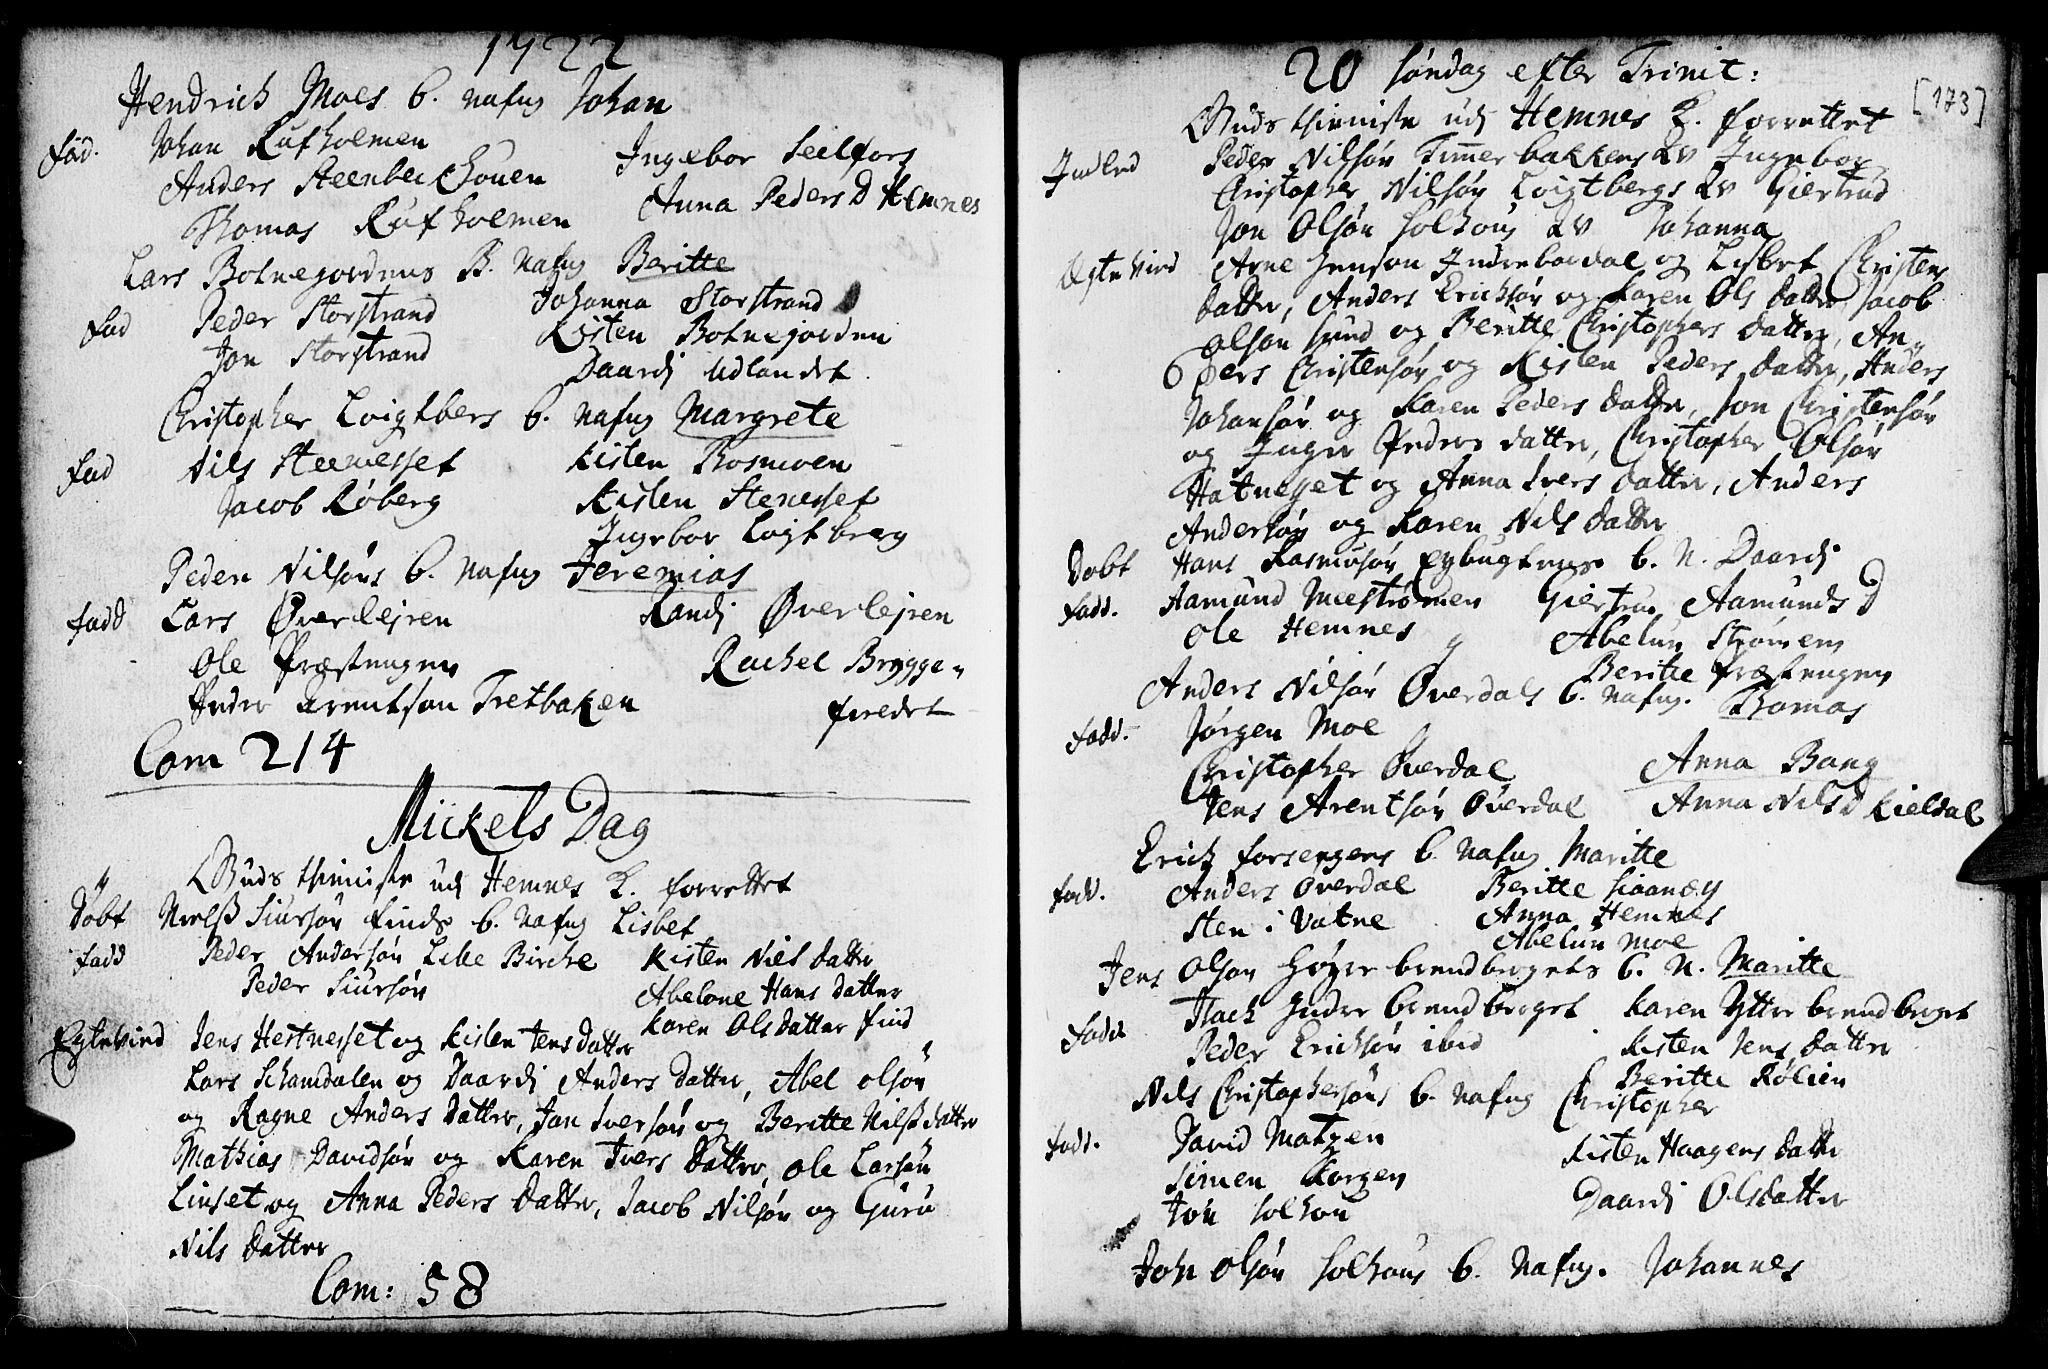 1722
Hendrich Moes b. nafng Johan
fad. Johan Rufholmen
Anders Steenbechouen Ingebor Seilfors
Thomas Rufholmen Anna Peders D Hemnes
Lars Botnegordens B. Nafng Beritte
fad Peder Storstrand Johanna Storstrand
Jon Storstrand Kisten Botnejorden
Daardj Udlandet
Christopher Loigtbers b. nafng Margrete
fad Nils Steenesset Kisten Rosmoen
Jacob Røberg Kisten Stenesset
Ingebor Loigtberg
Peder Nilsøns b. Nafng Jeremias
fadd Lars Øverlejren Randj Øverlejren
Ole Præstengen Rachel Brygge-
Peder Arentsøn Tretbaken firedet
Com 214
Mickels Dag
Guds thieniste udj Hemnes K. forrettet
Døbt Nielss Siursøn finds b. Nafng Lisbet
fadd Peder Andersøn Lille Birche Kisten Niels datter
Peder Siursøn Abelone Hans datter
Karen Ols datter find
Egteviid Jens Hestnesset og Kisten Jens datter
Lars Schamdalen og Daardj Anders datter, Abel olsøn
og Ragne Anders datter, Jon Iversøn og Beritte Nilss datter
Mathias Davidsøn og Karen Ivers datter, Ole Larsøn
Linset og Anna Peders datter, Jacob Nilsøn og Guru
Nils datter
Com: 58
20 søndag efter Trinit:
[173]
Guds thieniste udj Hemnes K. forrettet
Indled Peder Nilsøn Timmerbakkens Kv Ingebor
Christopher Nilsøn Loigtbergs Kv Giertrud
Jon Olsøn solhous Kv Johanna
Egteviid Arne Jensøn Indreboedal og Lisbet Christens
datter, Anders Ericksøn og Karen Ols datter Jacob
olsøn sund og Beritte Christophers datter, An-
6 ders Christensøn og Kisten Peders datter, Anders
Johansøn og Karen Peders datter, Jon Christensøn
og Inger Peders datter, Christopher Olsøn
Hatnesset og Anna Ivers datter, Anders
Andersøn og Karen Nils datter
Dobt Hans Rasmusøn Eybugtens b. N. Daardj
fadd. Aamund Moestrømen Giertrud Aamunds D
Ole Hemnes Abelun Strømen
Beritte Præstengen
Anders Nilsøn Øverdals b. nafng. Thomas
fadd. Jørgen Moe
Christopher Øverdal Anna Bang
Jens Arentsøn Øverdal Anna Nils D Kieldal
Erich forsengens b. Nafng Maritte
fadd. Anders Øverdal Beritte siaanæs
Sten i Vatne Anna Hemnes
Abelun Moe
Jens Olsøn Høyre brendbergets b. N. Maritte
fadd Isach Indre brendberget Karen Yttre brendberget
Peder Erichsøn ibid Kisten Jens datter
Beritte Rølien
Nils Christophersøns b. nafng Christopher
fadd. David Matzen Kisten Haagens datter
Simen Korgen Daardj Olsdatter
Jon solhou
John olsøn solhous b. Nafng. Johannes